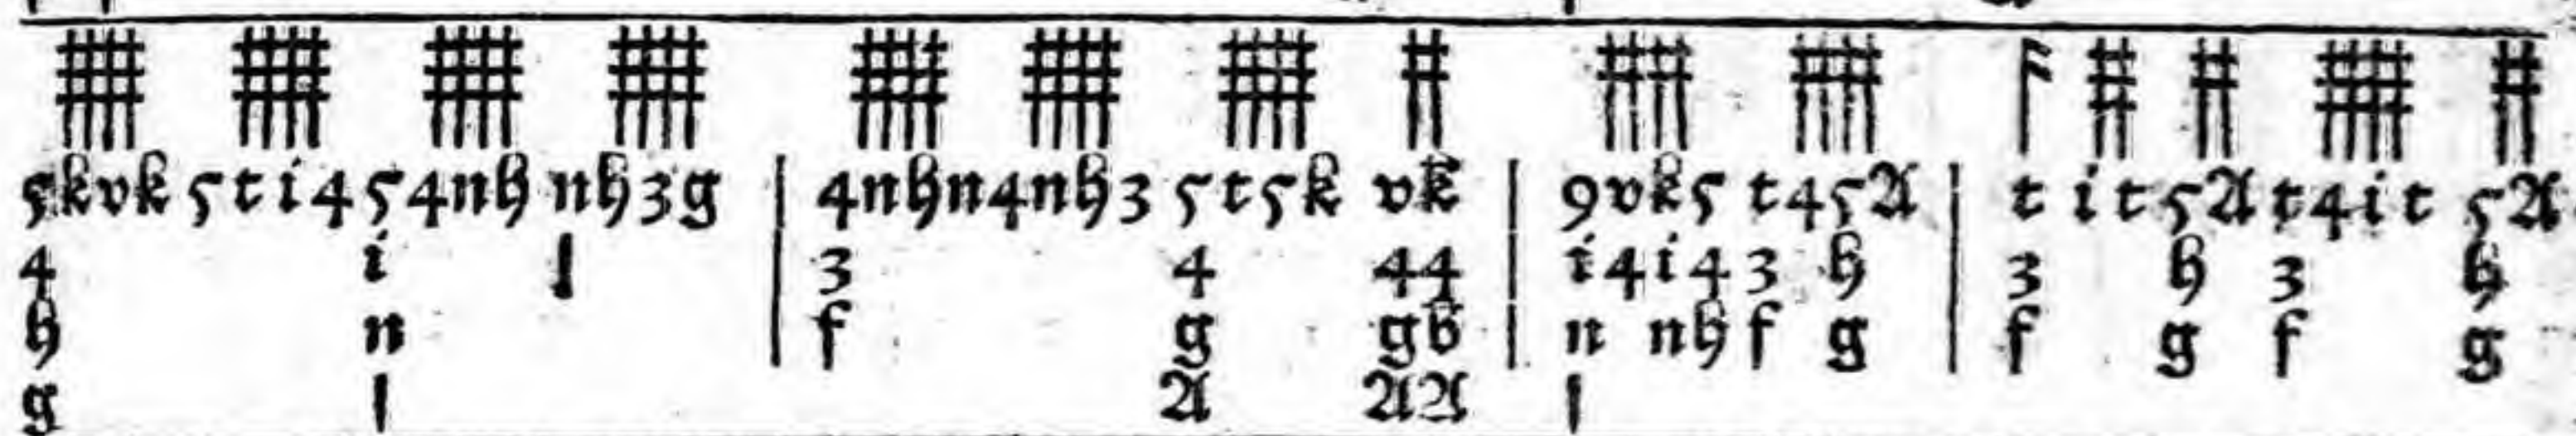 5kvk 5ti4 54nh nh3g | 4nhn 4nh3 5t5k vk | 9vk5 t45A | t it 5A t4it 5A
4 i | | 3 4 44 | i4i4 3 h | 3 h 3 h
h n | f g gb | n nh f g | f g f g
g | A AA |